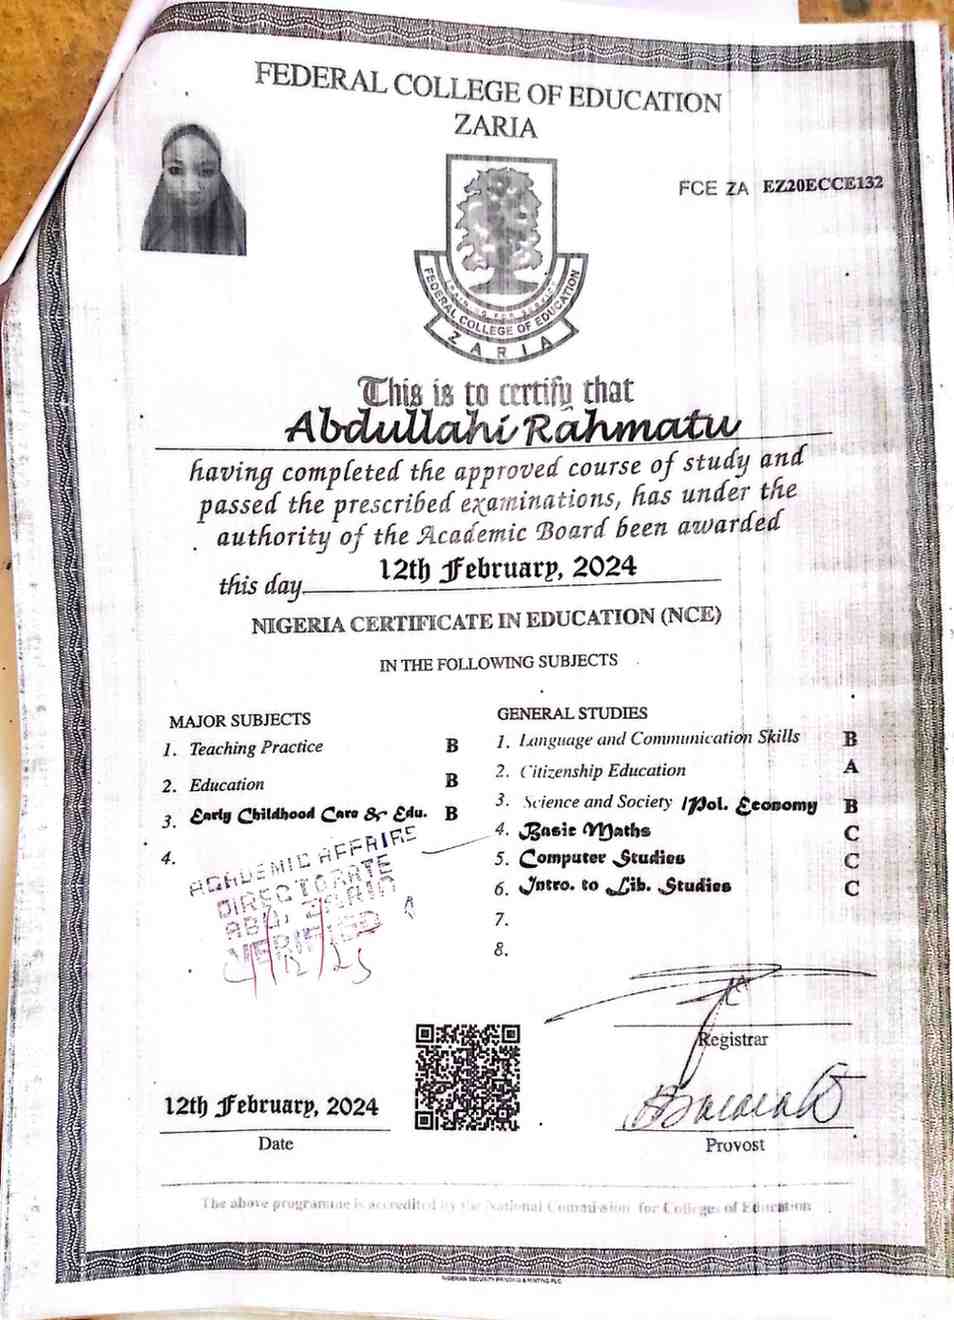 FEDERAL COLLEGE OF EDUCATION
ZARIA
FCE ZA EZ20ECCE132
FEDERAL COLLEGE OF EDUCATION
ZARIA
This is to certify that
Abdullahi Rahmatu
having completed the approved course of study and
passed the prescribed examinations, has under the
authority of the Academic Board been awarded
this day 12th February, 2024
NIGERIA CERTIFICATE IN EDUCATION (NCE)
IN THE FOLLOWING SUBJECTS
MAJOR SUBJECTS
1. Teaching Practice B
2. Education B
3. Early Childhood Care & Edu. B
4.
GENERAL STUDIES
1. Language and Communication Skills B
2. Citizenship Education A
3. Science and Society /Pol. Economy B
4. Basic Maths C
5. Computer Studies C
6. Intro. to Lib. Studies C
7.
8.
ACADEMIC AFFAIRS
DIRECTORATE
ABU, ZARIA
VERIFIED
Registrar
12th February, 2024
Date
Provost
The above programme is accredited by the National Commission for Colleges of Education
NIGERIAN SECURITY PRINTING & MINTING PLC